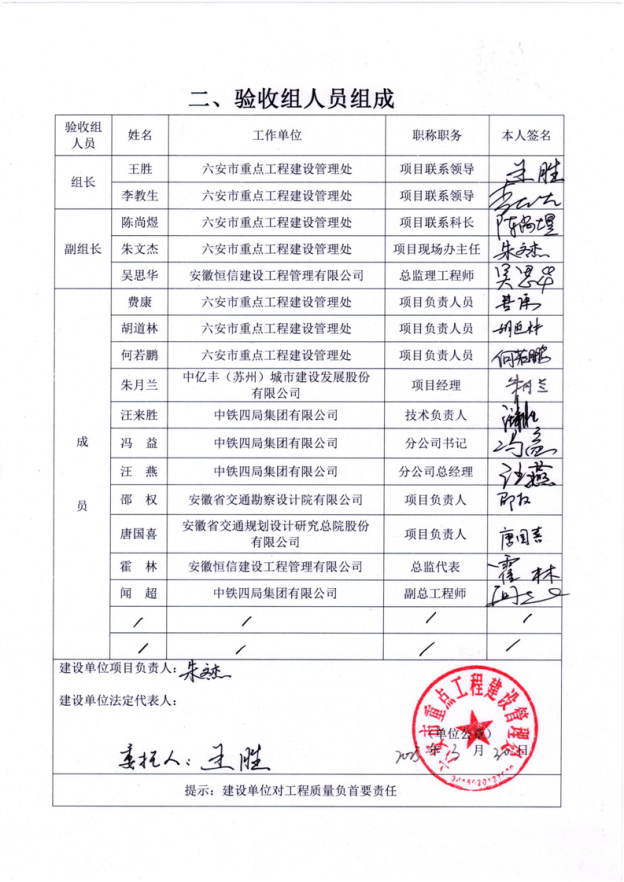 二、验收组人员组成
验收组人员 姓名 工作单位 职称职务 本人签名
组长 王胜 六安市重点工程建设管理处 项目联系领导 王胜
李教生 六安市重点工程建设管理处 项目联系领导
副组长 陈尚煜 六安市重点工程建设管理处 项目联系科长 陈尚煜
朱文杰 六安市重点工程建设管理处 项目现场办主任 朱文杰
吴思华 安徽恒信建设工程管理有限公司 总监理工程师 吴思华
成员 费康 六安市重点工程建设管理处 项目负责人员 费康
胡道林 六安市重点工程建设管理处 项目负责人员 胡道林
何若鹏 六安市重点工程建设管理处 项目负责人员 何若鹏
朱月兰 中亿丰（苏州）城市建设发展股份有限公司 项目经理 朱月兰
汪来胜 中铁四局集团有限公司 技术负责人
冯 益 中铁四局集团有限公司 分公司书记 冯益
汪 燕 中铁四局集团有限公司 分公司总经理 汪燕
邵 权 安徽省交通勘察设计院有限公司 项目负责人 邵权
唐国喜 安徽省交通规划设计研究总院股份有限公司 项目负责人 唐国喜
霍 林 安徽恒信建设工程管理有限公司 总监代表 霍林
闻 超 中铁四局集团有限公司 副总工程师
/ / / /
/ / / /
建设单位项目负责人：朱文杰
建设单位法定代表人：
六安市重点工程建设管理处
（单位公章）
委托人：王胜
年 3 月 日
提示：建设单位对工程质量负首要责任